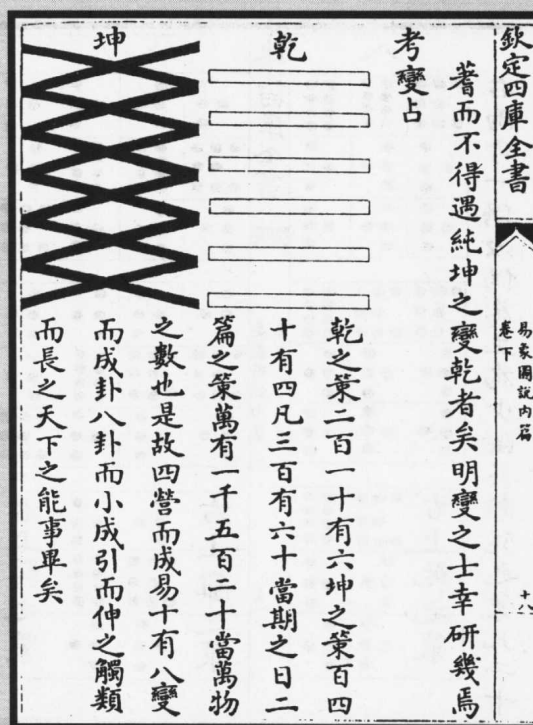 欽定四庫全書
易象圖說內篇
卷下
十八
蓍而不得遇純坤之變乾者矣明變之士幸研幾焉
考變占
乾
坤
乾之策二百一十有六坤之策百四
十有四凡三百有六十當期之日二
篇之策萬有一千五百二十當萬物
之數也是故四營而成易十有八變
而成卦八卦而小成引而伸之觸類
而長之天下之能事畢矣